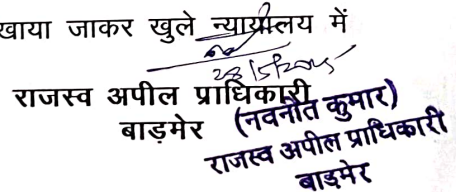 खाया जाकर खुले न्यायालय में
राजस्व अपील प्राधिकारी
बाड़मेर
(नवनीत कुमार)
राजस्व अपील प्राधिकारी
बाडमेर